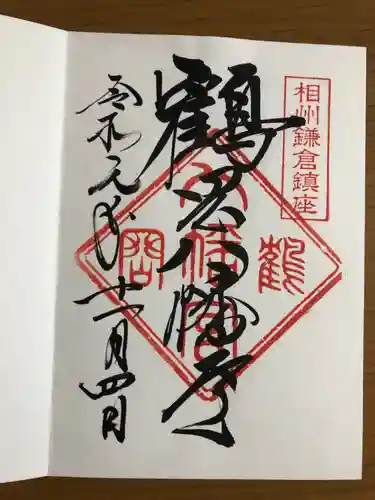 相州鎌倉鎮座
鶴岡八幡宮
鶴
岡
八幡宮
令和元年
十一月四日